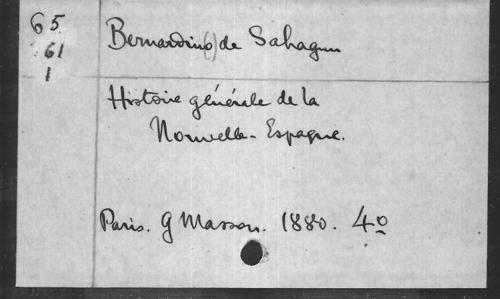 65
61
1
Bernardino() de Sahagun
Histoire générale de la
Nouvelle-Espagne.
Paris. G Masson. 1880. 4o